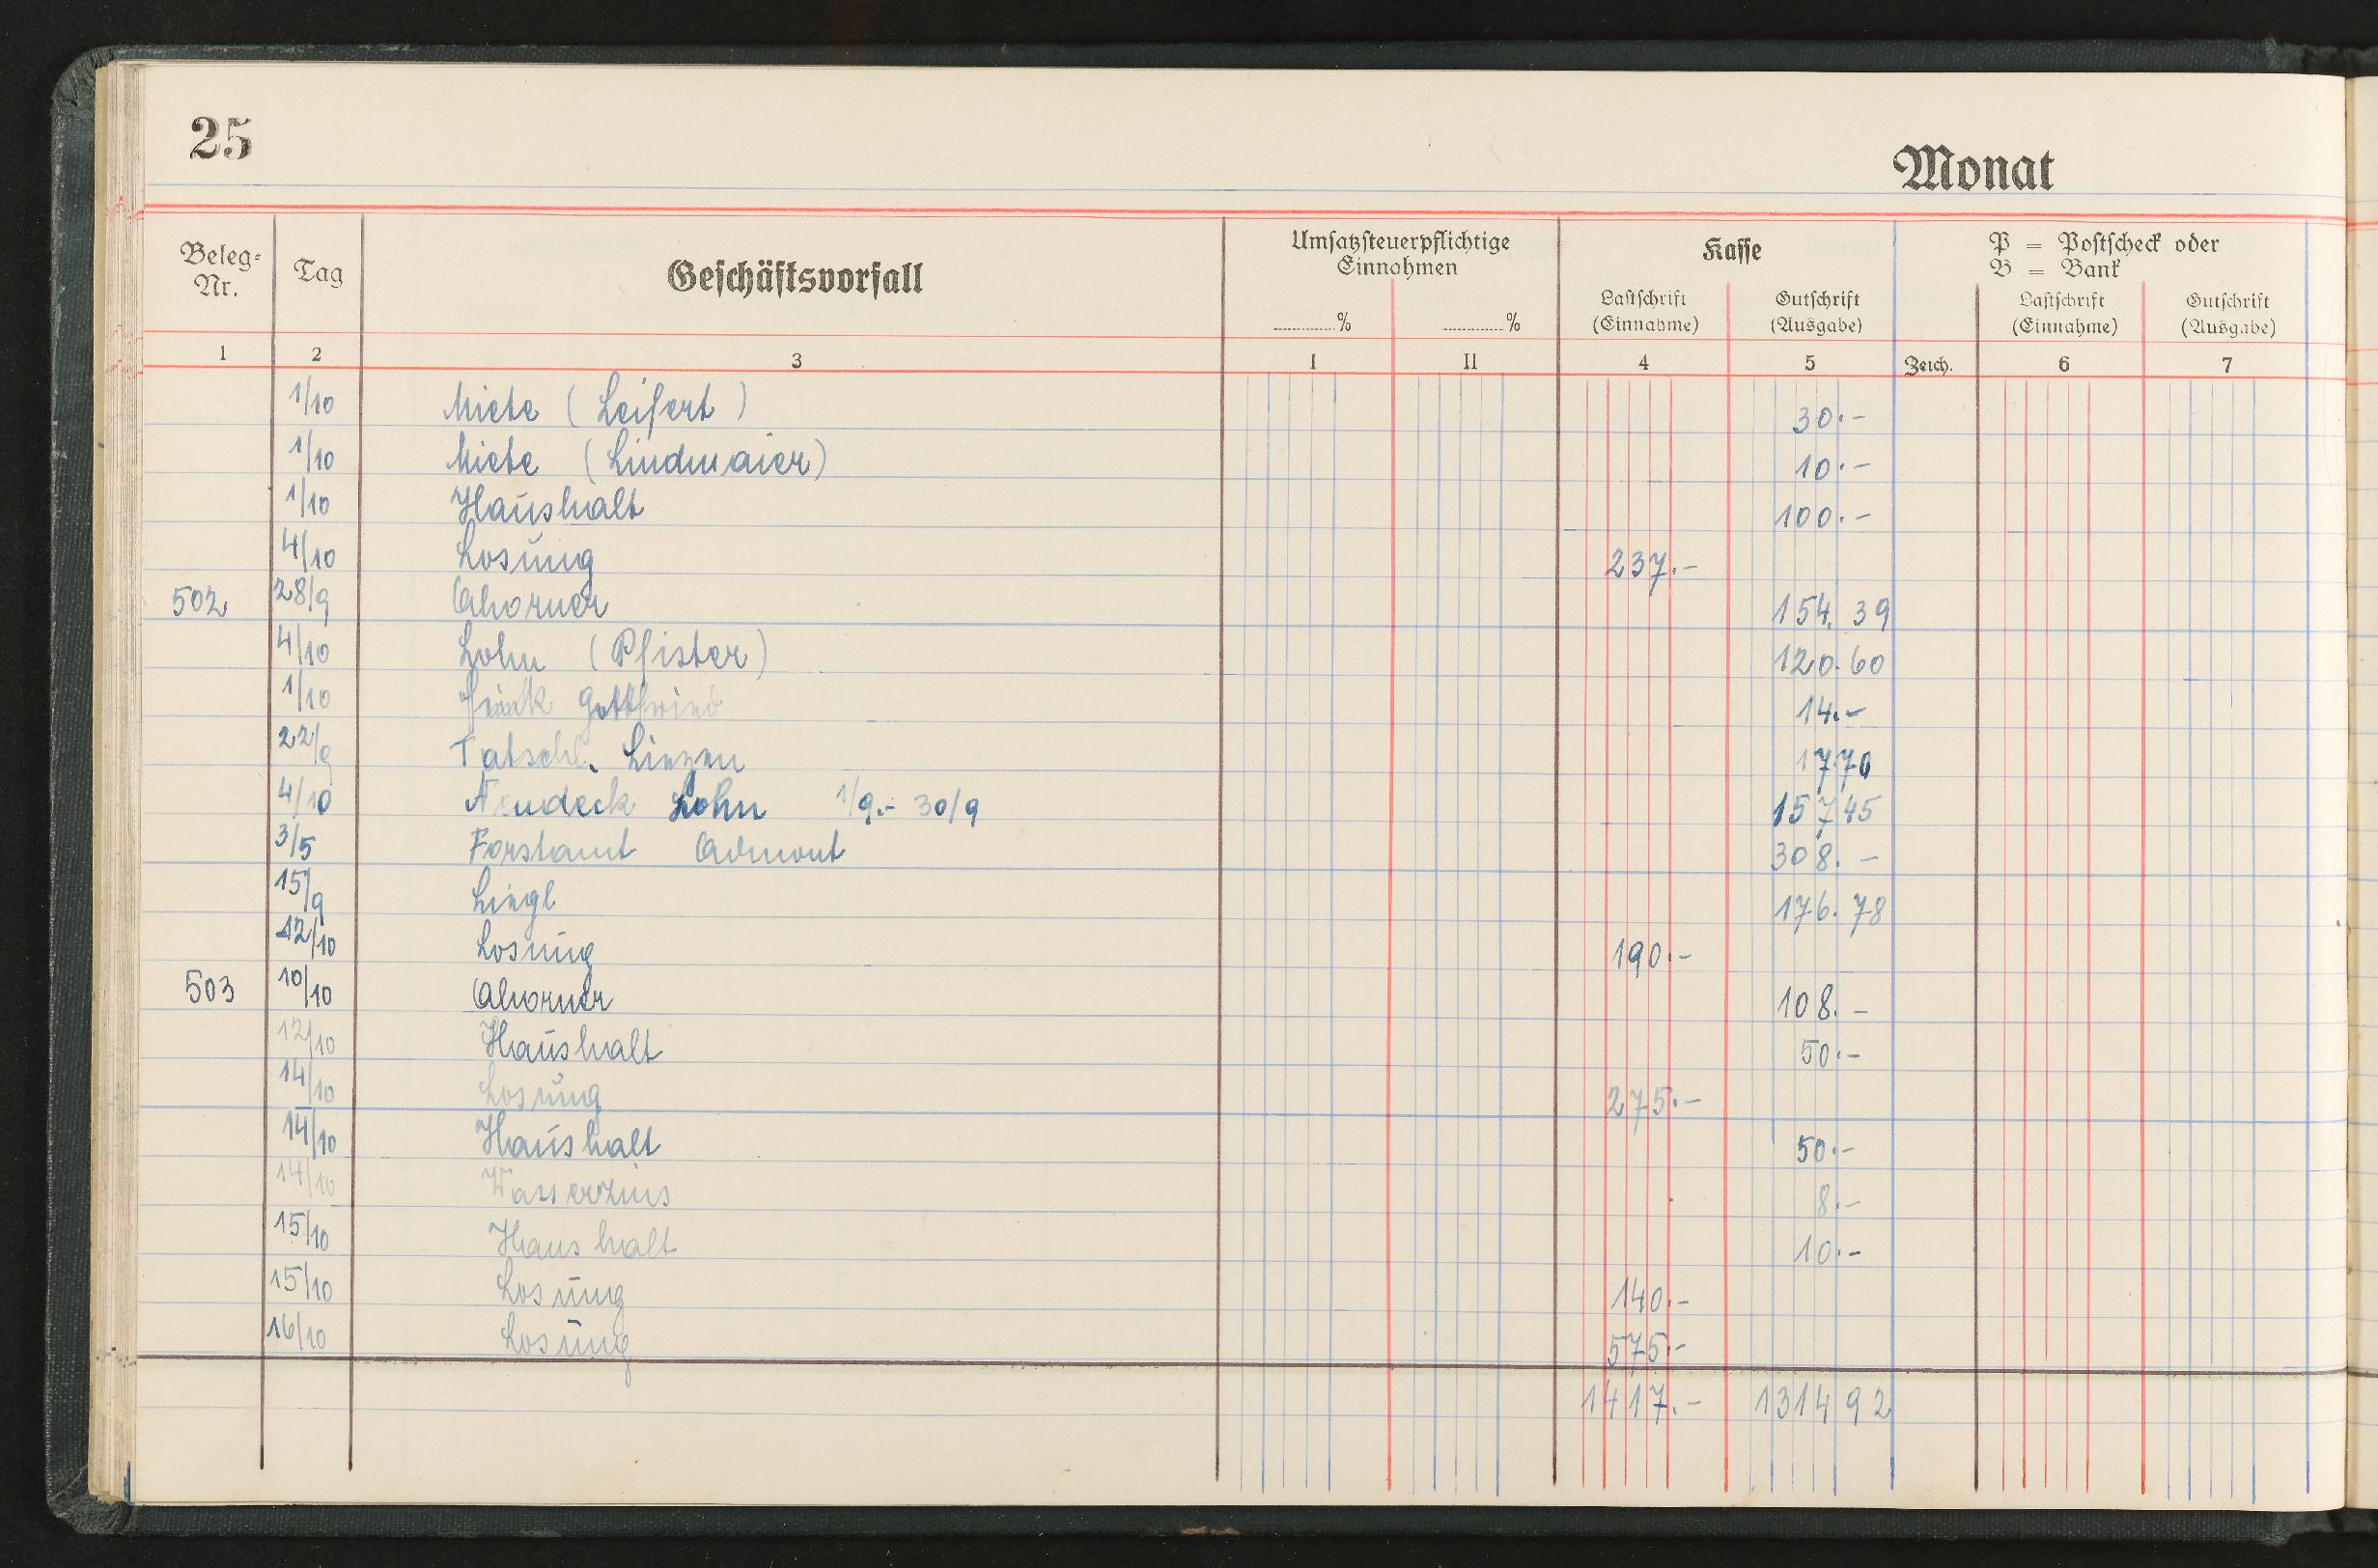 25
Monat
Beleg-Nr. Tag Geschäftsvorfall Umsatzsteuerpflichtige Einnahmen Kasse P = Postscheck oder B = Bank
..........% ..........% Lastschrift (Einnahme) Gutschrift (Ausgabe) Lastschrift (Einnahme) Gutschrift (Ausgabe)
1 2 3 I II 4 5 Zeich. 6 7
1/10 Miete (Leifert) 30.-
1/10 Miete (Lindmaier) 10.-
1/10 Haushalt 100.-
4/10 Losung 237.-
502 28/9 Ahorner 154.39
4/10 Lohn (Pfister) 120.60
1/10 Gottfried 14.-
22/9 Tatschl. Liezen 17 70
4/10 Lohn 1/9.- 30/9 157 45
3/5 Forstamt Admont 308.-
15/9 176.78
12/10 Losung 190.-
503 10/10 Ahorner 108.-
12/10 Haushalt 50.-
14/10 Losung 275.-
14/10 Haushalt 50.-
14/10 Wasserzins 8.-
15/10 Haushalt 10.-
15/10 Losung 140.-
16/10 Losung 575.-
1417.- 1314 92